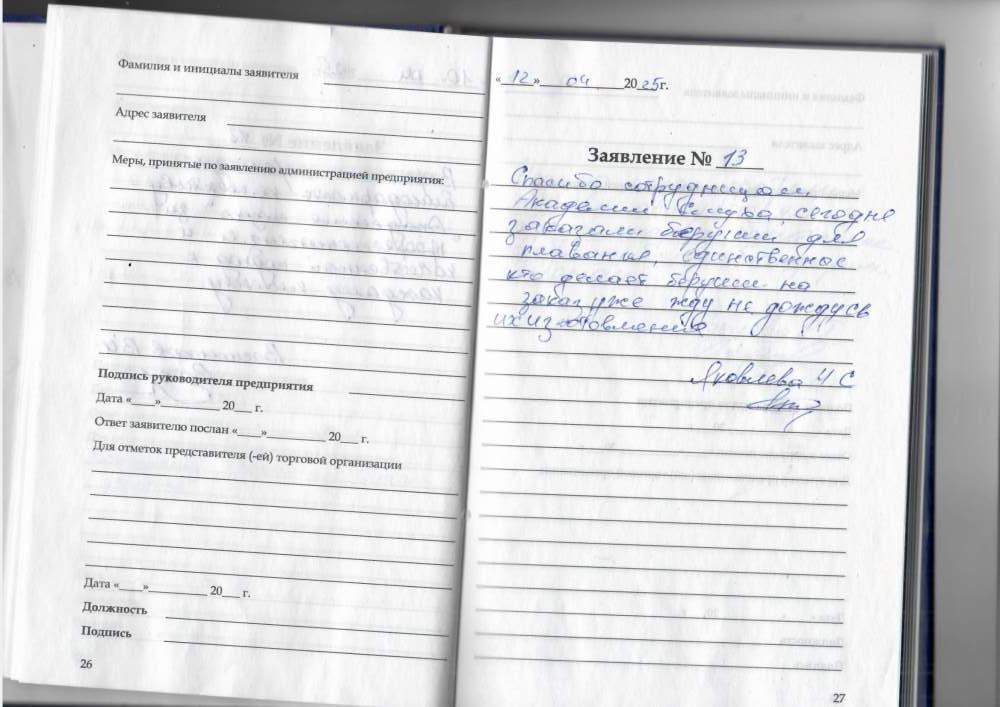 Фамилия и инициалы заявителя
Адрес заявителя
Меры, принятые по заявлению администрацией предприятия:
Подпись руководителя предприятия
Дата «____»__________ 20___ г.
Ответ заявителю послан «____»__________ 20___ г.
Для отметок представителя (-ей) торговой организации
Дата «____»__________ 20___ г.
Должность
Подпись
26
«12» 04 2025г.
Заявление № 13
Спасибо сотрудницам
Академии Слуха, сегодня
заказали беруши для
плаванья, единственные
кто делает беруши на
заказ уже жду не дождусь
их изготовления
Яковлева Ч С
27